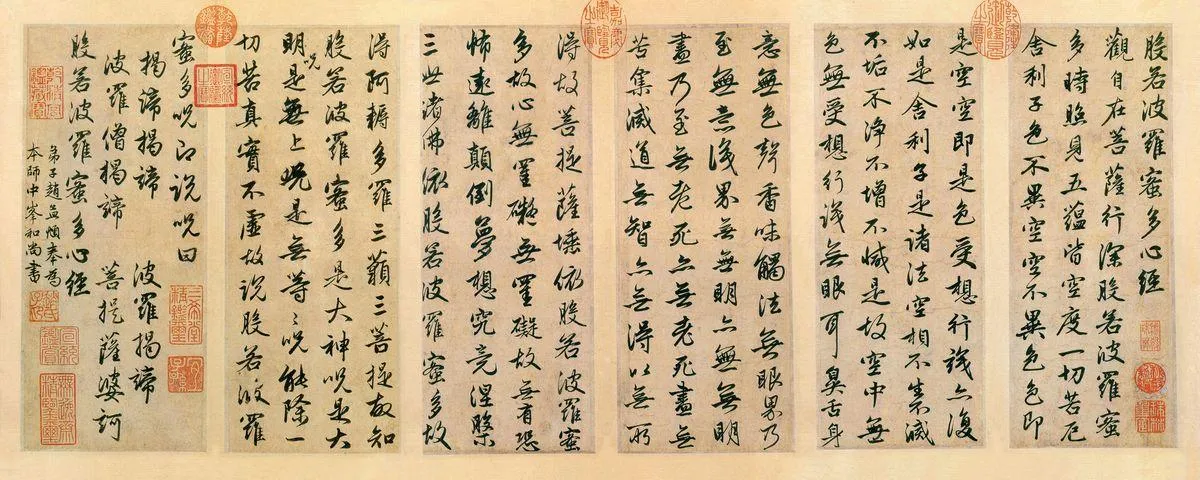 般若波羅蜜多心經
觀自在菩薩行深般若波羅蜜
多時照見五蘊皆空度一切苦厄
舍利子色不異空空不異色色即
是空空即是色受想行識亦復
如是舍利子是諸法空相不生不滅
不垢不淨不增不減是故空中無
色無受想行識無眼耳鼻舌身
意無色聲香味觸法無眼界乃
至無意識界無無明亦無無明
盡乃至無老死亦無老死盡無
苦集滅道無智亦無得以無所
得故菩提薩埵依般若波羅蜜
多故心無罣礙無罣礙故無有恐
怖遠離顛倒夢想究竟涅槃
三世諸佛依般若波羅蜜多故
得阿耨多羅三藐三菩提故知
般若波羅蜜多是大神呪是大
明呪是無上呪是無等〻呪能除一
切苦真實不虛故說般若波羅
蜜多呪即說呪曰
揭諦揭諦 波羅揭諦
波羅僧揭諦 菩提薩婆訶
般若波羅蜜多心經
弟子趙孟頫奉為
本師中峯和尚書
嘉慶御覽之寶
三希堂精鑑璽
宜子孫